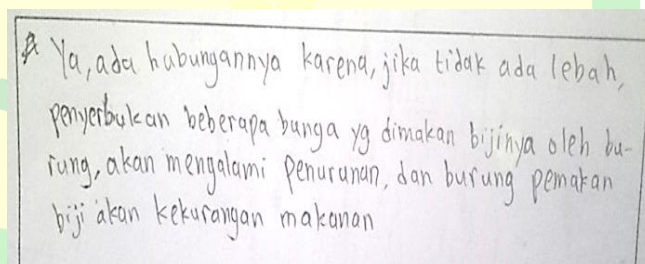 Ya, ada hubungannya karena, jika tidak ada lebah,
penyerbukan beberapa bunga yg dimakan bijinya oleh bu-
rung, akan mengalami penurunan, dan burung pemakan
biji akan kekurangan makanan